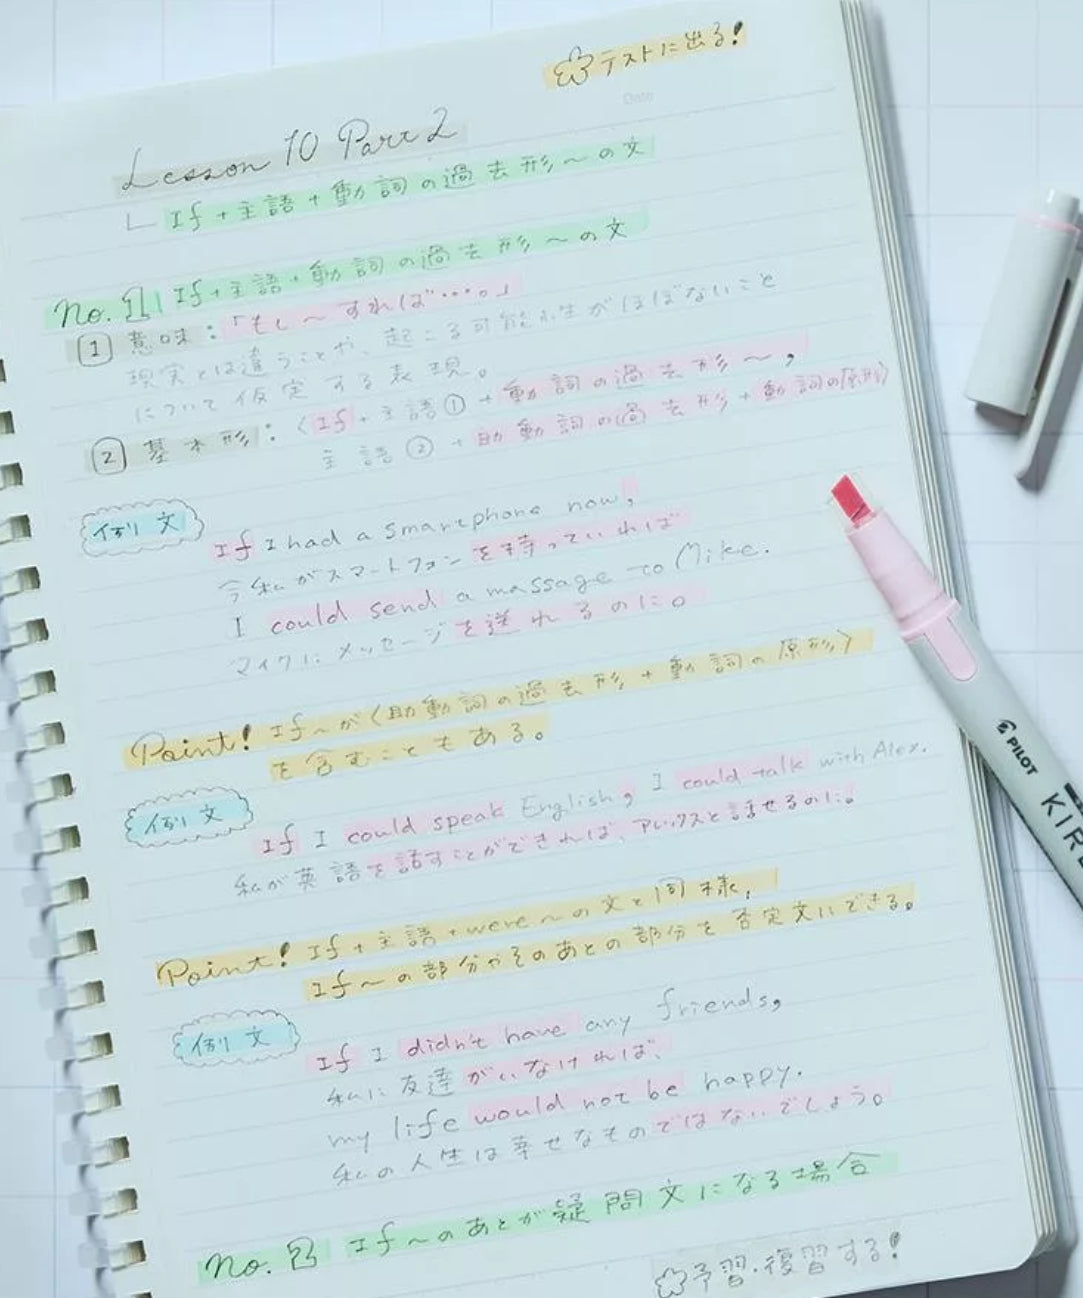 テストに出る!
Date
Lesson 10 Part 2
If+主語+動詞の過去形~の文
No. 1 If+主語+動詞の過去形~の文
1 意味:「もし~すれば…。」
現実とは違うことや、起こる可能性がほぼないこと
について仮定する表現。
2 基本形:〈If+主語①+動詞の過去形~,
主語②+助動詞の過去形+動詞の原形〉
例文
If I had a smartphone now,
今私がスマートフォンを持っていれば
I could send a massage to Mike.
マイクにメッセージを送れるのに。
Point! If~が〈助動詞の過去形+動詞の原形〉
を含むこともある。
例文
If I could speak English, I could talk with Alex.
私が英語を話すことができれば、アレックスと話せるのに。
Point! If+主語+were~の文と同様,
If~の部分やそのあとの部分を否定文にできる。
例文
If I didn't have any friends,
私に友達がいなければ、
my life would not be happy.
私の人生は幸せなものではないでしょう。
No. 2 If~のあとが疑問文になる場合
予習・復習する!
PILOT